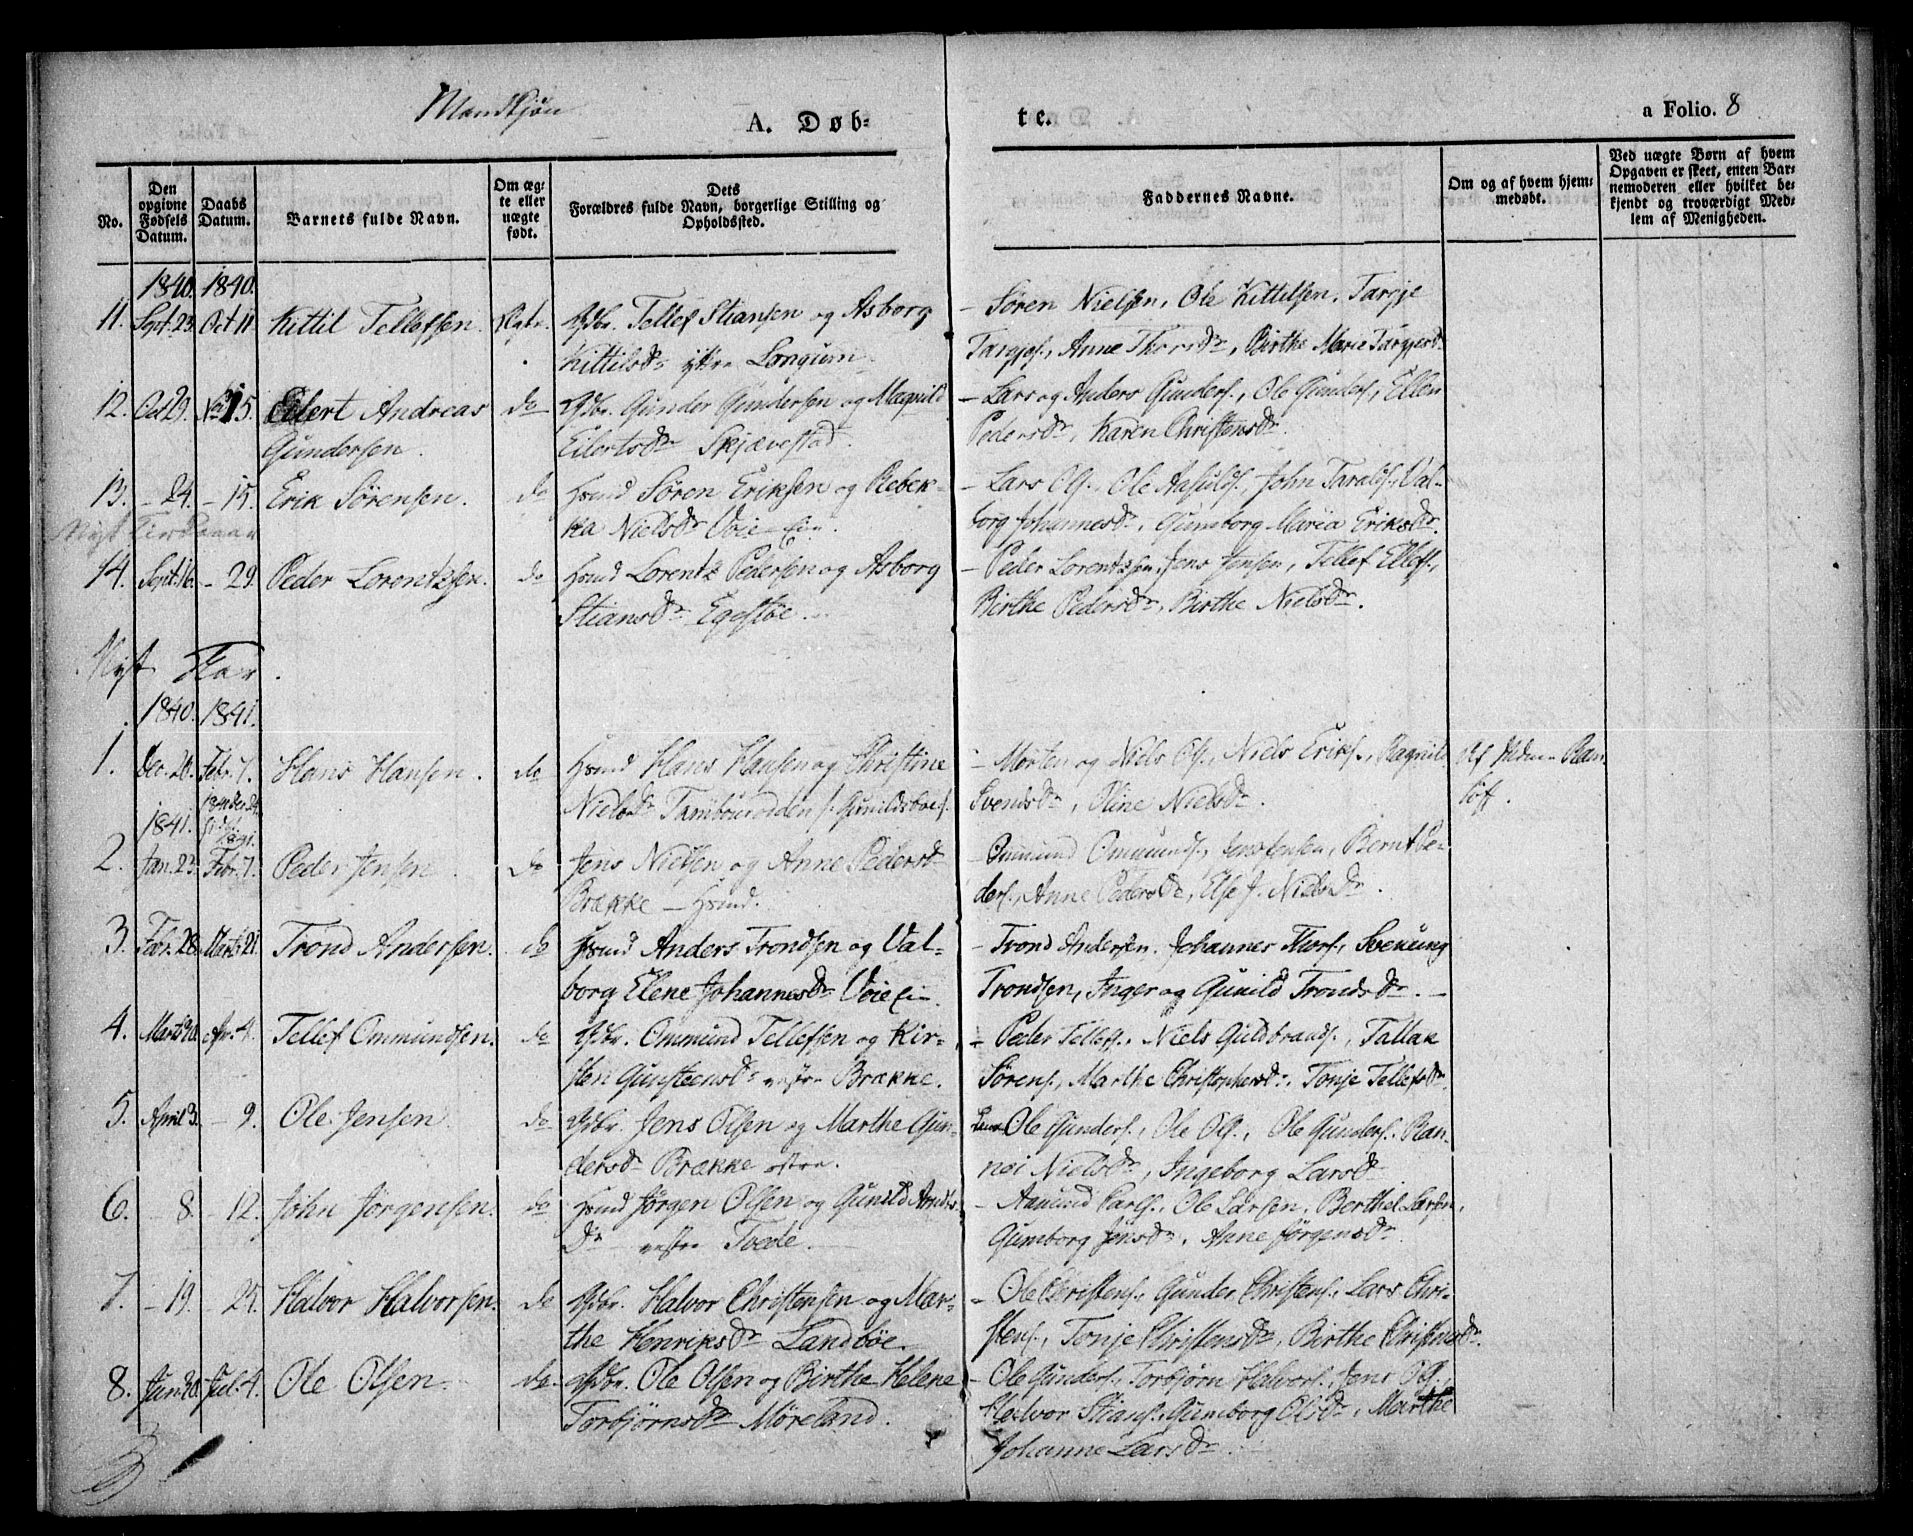 Mandkjøn
A. Døb-
te.
a Folio. 8
No.
Den opgivne Fødsels Datum.
Daabs Datum.
Barnets fulde Navn.
Om ægte eller uægte født.
Dets Forældres fulde Navn, borgerlige Stilling og Opholdssted.
Faddernes Navne.
Om og af hvem hjemmedøbt.
Ved uægte Børn af hvem Opgaven er skeet, enten Barnemoderen eller hvilket bekjendt og troværdigt Medlem af Menigheden.
1840. 1840.
11. Sept. 23. Oct 11 Kittil Tellefsen. Ægte. Gdbr. Tellef Stiansen og Asborg
Kittilsdr ytre Longum.
- Søren Nielsen, Ole Kittilsen, Targje
Targjes., Anne Thorsdr, Birthe Marie Targjesdr
12. Oct 29. Nov 15. Eilert Andreas do Gdbr. Gunder Gundersen og Magnild
Gundersen. Eilertsdr Skjævestad.
- Lars og Anders Gunders., Ole Gunders., Ellen
Pedersdr, Karen Christensdr.
13. - 24. - 15. Erik Sørensen. do Hsmd Søren Eriksen og Rebek-
ka Nielsdr Voie Ei-.
- Lars Ols., Ole Aasulds., John Taralds., Val-
borg Johannesdr, Gumborg Maria Eriksdr.
Nyt Kirkeaar
14. Sept. 16. - 29. Peder Lorentzsen. do Hsmd Lorentz Pedersen og Asborg
Stiansdr Egestøe.
- Peder Lorentzsen, Jens Jensen, Tellef Ellefs.,
Birthe Pedersdr, Birthe Nielsdr.
Nyt Aar.
1840. 1841.
1. Dec. 20. Febr. 7. Hans Hansen. do Hsmd Hans Hansen og Christine
Nielsdr
- Morten og Niels Ols., Niels Eriks., Ragnild
Svendsdr, Oline Nielsdr.
1841.
2. Jan. 23. Febr. 7. Peder Jensen. do Jens Nielsen og Anne Pedersdr
Brække - Hsmd.
- Ommund Ommunds., Jens Jensen, Bernt Pe-
ders., Anne Pedersdr, Else J. Nielsdr.
3. Febr. 28. Marts 21. Trond Andersen. do Hsmd Anders Trondsen og Val-
borg Elene Johannesdr Voie Ei-.
- Trond Andersen. Johannes Thors., Svenung
Trondsen, Inger og Gunild Trondsdr.
4. Marts 10. Apr. 4. Tellef Ommundsen. do Gdbr. Ommund Tellefsen og Kir-
sten Gunsteensdr vestre Brække.
- Peder Tellefs., Niels Guldbrands., Tallak
Sørens., Marthe Christophersdr, Tonje Tellefsdr.
5. April 3. - 9. Ole Jensen do Gdbr. Jens Olsen og Marthe Gun-
dersdr Brække østre.
Ole Gunders., Ole Ols., Ole Gunders., Ran-
nei Nielsdr, Ingeborg Larsdr.
6. - 8. - 12. John Jørgensen. do Hsmd Jørgen Olsen og Gunild Anders
Dr vestre Tvede.
- Aamund Carls., Ole Larsen, Berthel Larsen,
Gumborg Jensdr, Anne Jørgensdr.
7. - 19. - 25. Halvor Halvorsen. do Gdbr. Halvor Christensen og Mar-
the Henriksdr Landbøe.
- Ole Christens., Gunder Christens., Lars Chri-
stens., Tonje Christensdr, Birthe Christensdr.
8. Jun. 20. Jul. 4. Ole Olsen. do. Gdbr. Ole Olsen og Birthe Helene
Torbjørnsdr Møreland.
- Ole Gunders., Torbjørn Halvors., Jens Ols.,
Halvor Stians., Gumborg Olsdr, Marthe
Johanne Larsdr.